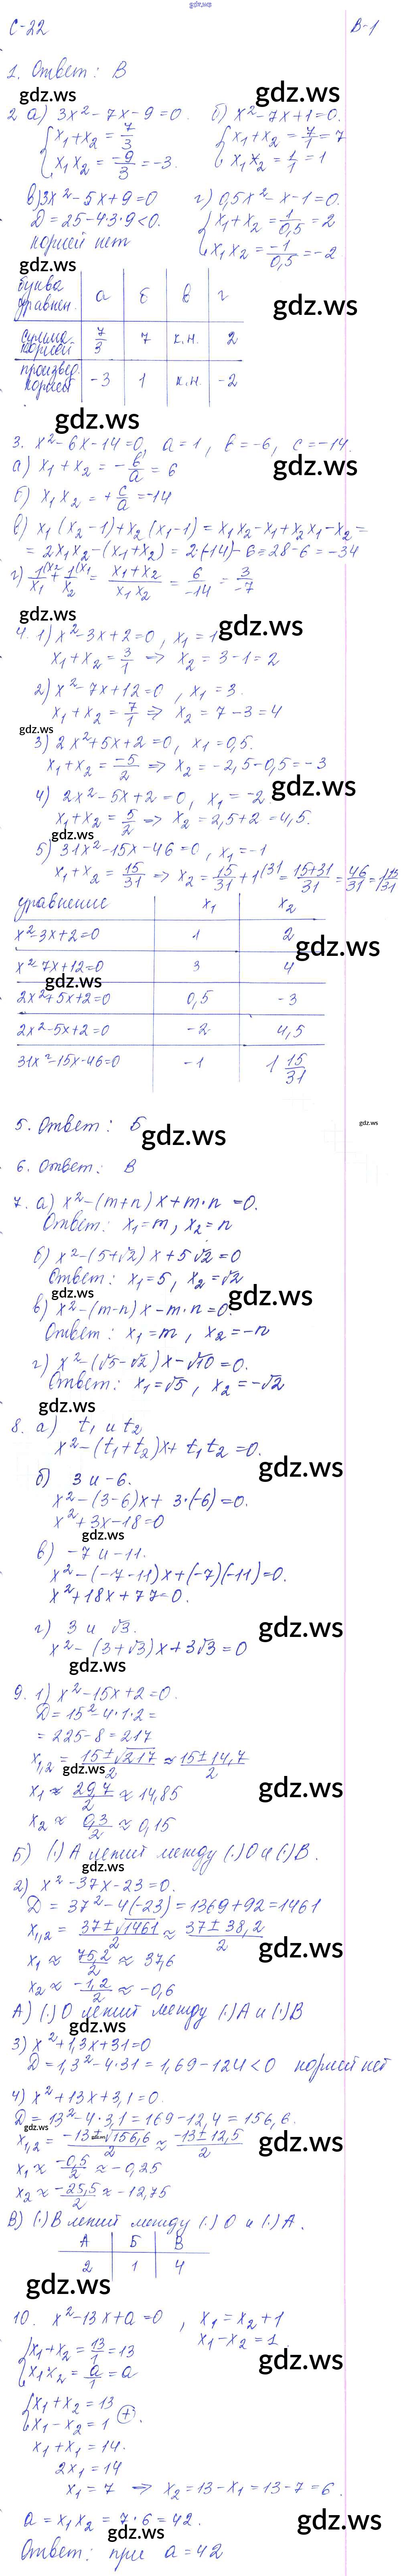 gdz.ws
С-22 В-1
1. Ответ: В
gdz.ws gdz.ws
2 а) 3x² - 7x - 9 = 0. б) x² - 7x + 1 = 0.
{ x₁ + x₂ = 7/3 { x₁ + x₂ = 7/1 = 7
x₁x₂ = -9/3 = -3. x₁x₂ = 1/1 = 1
в) 3x² - 5x + 9 = 0 г) 0,5x² - x - 1 = 0.
D = 25 - 4·3·9 < 0. { x₁ + x₂ = 1/0,5 = 2
корней нет x₁x₂ = -1/0,5 = -2
gdz.ws
буква уравнен. а б в г
gdz.ws
сумма корней 7/3 7 к.н. 2
произвед. корней -3 1 к.н. -2
gdz.ws
3. x² - 6x - 14 = 0, a = 1, b = -6, c = -14.
а) x₁ + x₂ = -b/a = 6
gdz.ws gdz.ws
б) x₁x₂ = +c/a = -14
в) x₁(x₂ - 1) + x₂(x₁ - 1) = x₁x₂ - x₁ + x₂x₁ - x₂ =
= 2x₁x₂ - (x₁ + x₂) = 2·(-14) - 6 = -28 - 6 = -34
г) 1/x₁ + 1/x₂ = (x₁ + x₂)/(x₁x₂) = 6/-14 = 3/-7
gdz.ws gdz.ws
4. 1) x² - 3x + 2 = 0, x₁ = 1
x₁ + x₂ = 3/1 => x₂ = 3 - 1 = 2
2) x² - 7x + 12 = 0, x₁ = 3.
x₁ + x₂ = 7/1 => x₂ = 7 - 3 = 4
gdz.ws
3) 2x² + 5x + 2 = 0, x₁ = 0,5.
x₁ + x₂ = -5/2 => x₂ = -2,5 - 0,5 = -3
gdz.ws
4) 2x² - 5x + 2 = 0, x₁ = -2
x₁ + x₂ = 5/2 => x₂ = 2,5 + 2 = 4,5.
gdz.ws
5) 31x² - 15x - 46 = 0, x₁ = -1
x₁ + x₂ = 15/31 => x₂ = 15/31 + 1 = (15+31)/31 = 46/31 = 1 15/31
уравнение x₁ x₂
x² - 3x + 2 = 0 1 2
gdz.ws
x² - 7x + 12 = 0 3 4
gdz.ws
2x² + 5x + 2 = 0 0,5 -3
2x² - 5x + 2 = 0 -2 4,5
31x² - 15x - 46 = 0 -1 1 15/31
5. Ответ: Б
gdz.ws gdz.ws
6. Ответ: В
7. а) x² - (m + n)x + m·n = 0.
Ответ: x₁ = m, x₂ = n
б) x² - (5 + √2)x + 5√2 = 0
Ответ: x₁ = 5, x₂ = √2
gdz.ws gdz.ws
в) x² - (m - n)x - m·n = 0
Ответ: x₁ = m, x₂ = -n
г) x² - (√5 - √2)x - √10 = 0.
Ответ: x₁ = √5, x₂ = -√2
gdz.ws
8. а) t₁ и t₂
x² - (t₁ + t₂)x + t₁t₂ = 0.
gdz.ws
б) 3 и -6.
x² - (3 - 6)x + 3·(-6) = 0.
x² + 3x - 18 = 0
gdz.ws
в) -7 и -11.
x² - (-7 - 11)x + (-7)(-11) = 0.
x² + 18x + 77 = 0.
г) 3 и √3.
gdz.ws
x² - (3 + √3)x + 3√3 = 0
gdz.ws
9. 1) x² - 15x + 2 = 0.
D = 15² - 4·1·2 =
= 225 - 8 = 217
x₁,₂ = (15 ± √217)/2 ≈ (15 ± 14,7)/2
gdz.ws
x₁ ≈ 29,7/2 ≈ 14,85
gdz.ws
x₂ ≈ 0,3/2 ≈ 0,15
Б) (.) А лежит между (.) О и (.) В.
gdz.ws
2) x² - 37x - 23 = 0.
D = 37² - 4(-23) = 1369 + 92 = 1461
x₁,₂ = (37 ± √1461)/2 ≈ (37 ± 38,2)/2
gdz.ws
x₁ ≈ 75,2/2 ≈ 37,6
x₂ ≈ -1,2/2 ≈ -0,6
А) (.) О лежит между (.) А и (.) В
gdz.ws
3) x² + 1,3x + 31 = 0
D = 1,3² - 4·31 = 1,69 - 124 < 0 корней нет
4) x² + 13x + 3,1 = 0.
D = 13² - 4·3,1 = 169 - 12,4 = 156,6.
gdz.ws
x₁,₂ = (-13 ± √156,6)/2 ≈ (-13 ± 12,5)/2
gdz.ws
x₁ ≈ -0,5/2 ≈ -0,25
x₂ ≈ -25,5/2 ≈ -12,75
В) (.) В лежит между (.) О и (.) А.
А Б В
2 1 4
gdz.ws
10. x² - 13x + a = 0, x₁ = x₂ + 1
x₁ - x₂ = 1.
{ x₁ + x₂ = 13/1 = 13
x₁x₂ = a/1 = a
gdz.ws
{ x₁ + x₂ = 13
x₁ - x₂ = 1 (+).
x₁ + x₁ = 14.
2x₁ = 14
x₁ = 7 => x₂ = 13 - x₁ = 13 - 7 = 6.
a = x₁x₂ = 7·6 = 42.
gdz.ws gdz.ws
Ответ: при a = 42